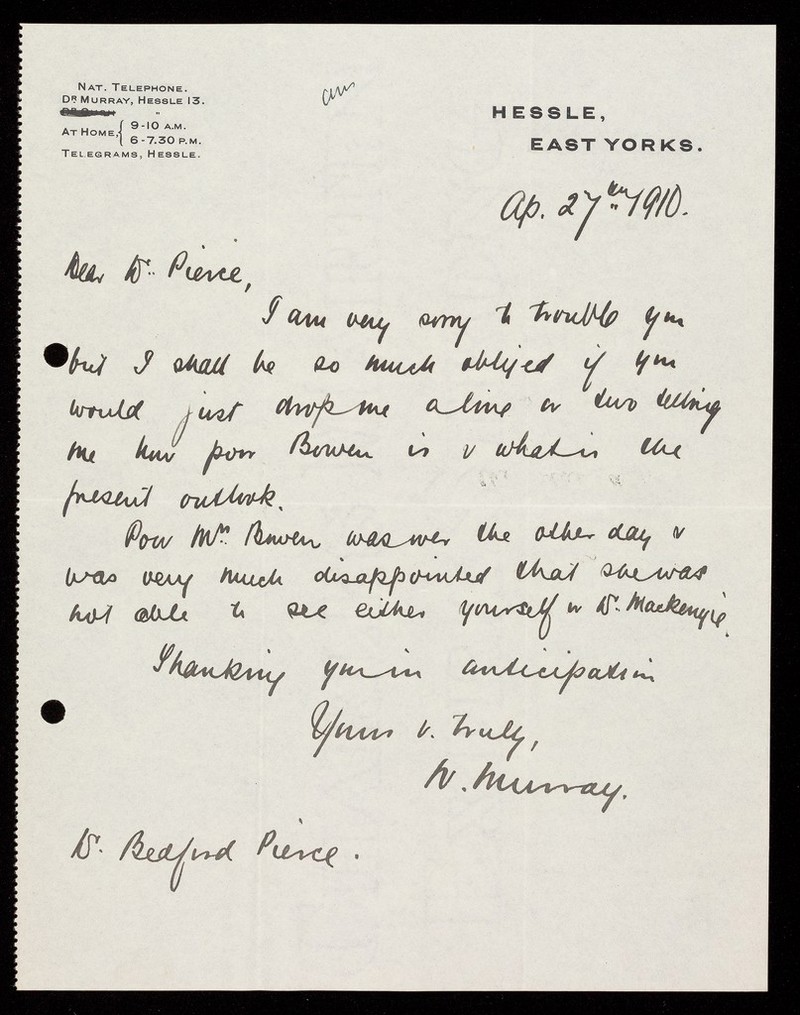 NAT. TELEPHONE.
DR MURRAY, HESSLE 13.
"
AT HOME, { 9-10 A.M.
6-7.30 P.M.
TELEGRAMS, HESSLE.
ans
HESSLE,
EAST YORKS.
Ap. 27th 1910.
Dear Dr. Pierce,
I am very sorry to trouble you
but I shall be so much obliged if you
would just drop me a line or two telling
me how poor Bowen is & what is the
present outlook.
Poor Mrs. Bowen was over the other day &
was very much disappointed that she was
not able to see either yourself or Dr. Mackenzie.
Thanking you in anticipation
Yours v. truly,
W. Murray.
Dr. Bedford Pierce.